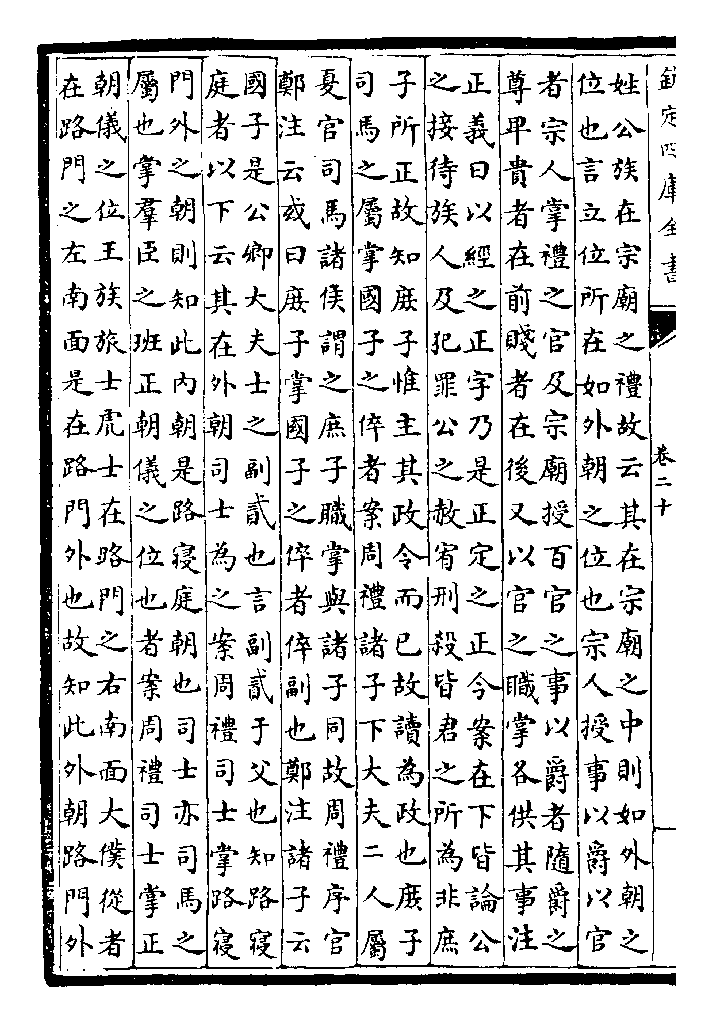 欽定四庫全書
卷二十
姓公族在宗廟之禮故云其在宗廟之中則如外朝之
位也言立位所在如外朝之位也宗人授事以爵以官
者宗人掌禮之官及宗廟授百官之事以爵者隨爵之
尊卑貴者在前賤者在後又以官之職掌各供其事注
正義曰以經之正字乃是正定之正今案在下皆論公
之接待族人及犯罪公之赦宥刑殺皆君之所為非庶
子所正故知庶子惟主其政令而已故讀為政也庶子
司馬之屬掌國子之倅者案周禮諸子下大夫二人屬
夏官司馬諸侯謂之庶子職掌與諸子同故周禮序官
鄭注云或曰庶子掌國子之倅者倅副也鄭注諸子云
國子是公卿大夫士之副貳也言副貳于父也知路寢
庭者以下云其在外朝司士為之案周禮司士掌路寢
門外之朝則知此內朝是路寢庭朝也司士亦司馬之
屬也掌羣臣之班正朝儀之位也者案周禮司士掌正
朝儀之位王族旅士虎士在路門之右南面大僕從者
在路門之左南面是在路門外也故知此外朝路門外